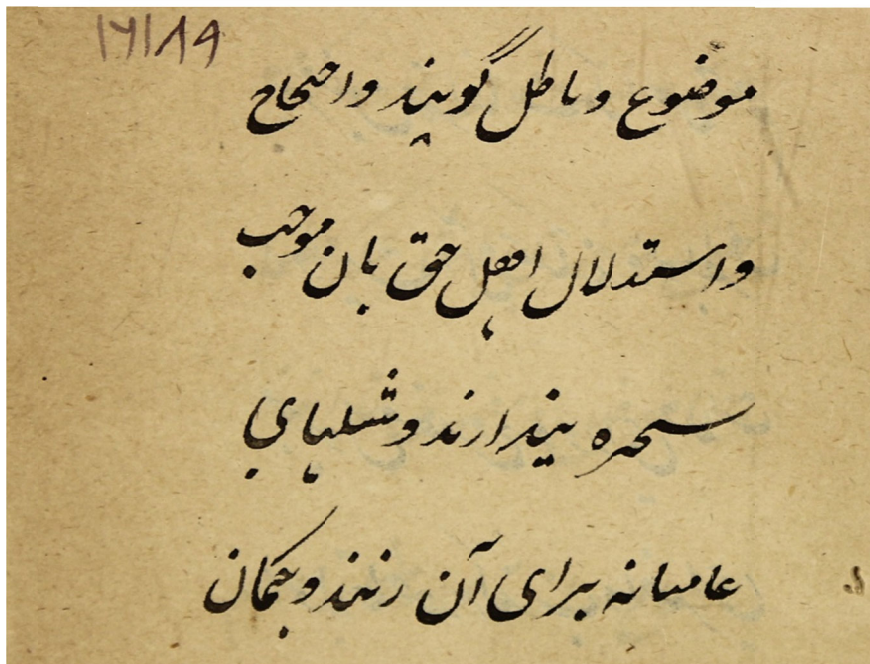 ۱۲۱۸۹
موضوع و باطل گویند و احتجاج
و استدلال اهل حق بان موجب
سخره پندارند و مثلهای
عامیانه برای آن زنند و بگمان